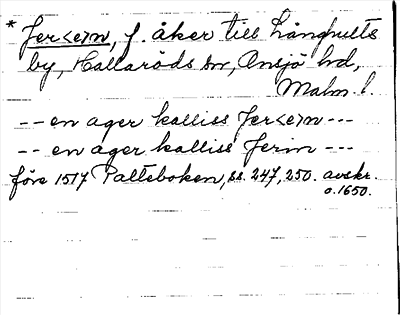 * Jer<e>m, f. åker till Långhults
by, Hallaröds sn, Onsjö hd,
Malm. l.
-- en ager kalliss Jer<e>m ---
-- en ager kalliss Jerim ---
före 1517 Palteboken, ss. 247, 250. avskr.
o. 1650.